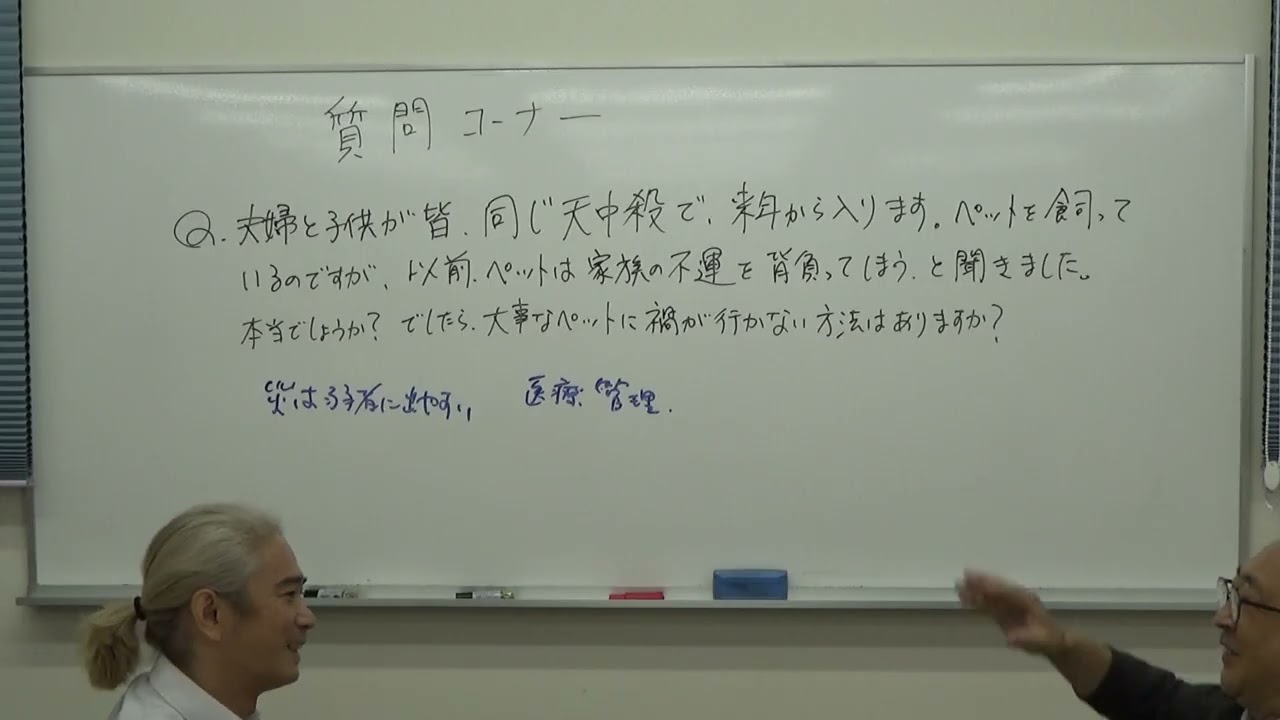 質問コーナー
Q. 夫婦と子供が皆、同じ天中殺で、来年から入ります。ペットを飼って
いるのですが、以前、ペットは家族の不運を背負ってしまう、と聞きました。
本当でしょうか? でしたら、大事なペットに禍が行かない方法はありますか?
災は弱者に出やすい 医療、管理.